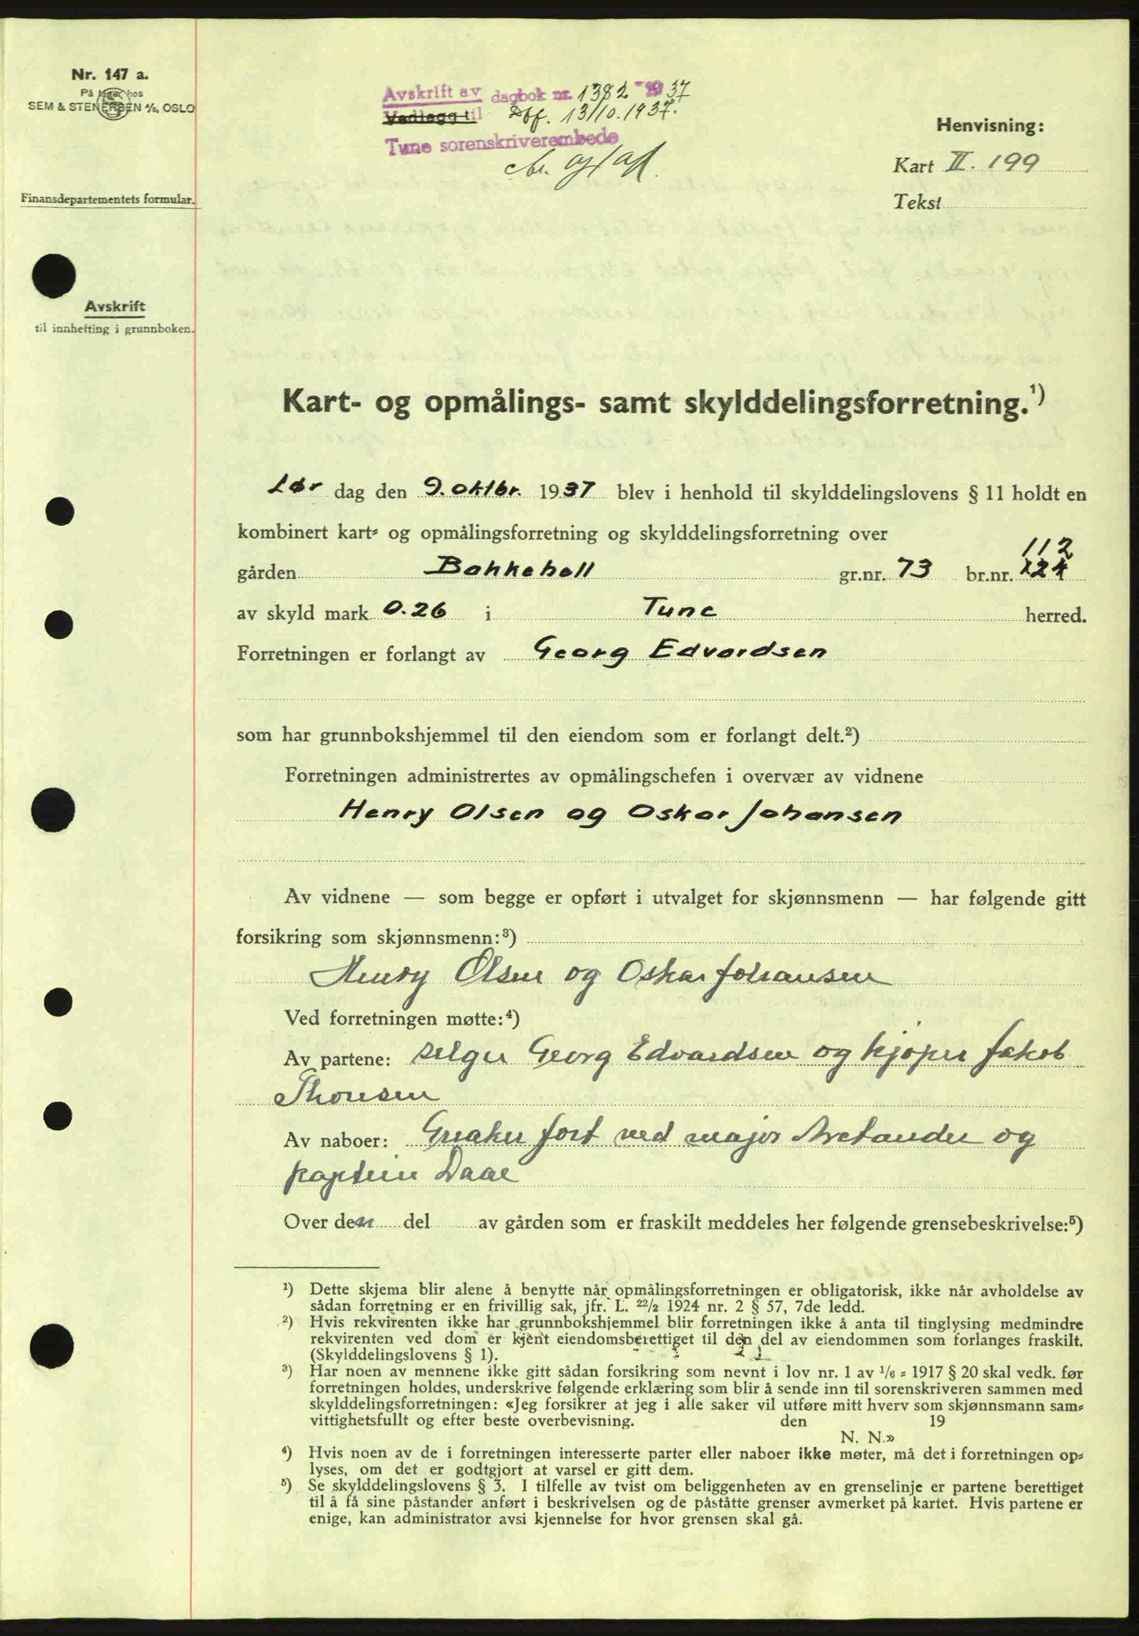 Nr. 147 a.
På lager hos
SEM & STENERSEN A/S, OSLO
Finansdepartementets formular.
Avskrift
til innhefting i grunnboken.
Avskrift av dagbok nr. 1382 - 1937
Vedlegg til Dbf. 13/10.1937.
Tune sorenskriverembede
Henvisning:
Kart II. 199
Tekst
Kart- og opmålings- samt skylddelingsforretning.¹)
Lør dag den 9. oktbr. 1937 blev i henhold til skylddelingslovens § 11 holdt en
kombinert kart- og opmålingsforretning og skylddelingsforretning over
112
gården Bakkehell gr.nr. 73 br.nr. 124
av skyld mark 0.26 i Tune herred.
Forretningen er forlangt av Georg Edvardsen
som har grunnbokshjemmel til den eiendom som er forlangt delt.²)
Forretningen administrertes av opmålingschefen i overvær av vidnene
Henry Olsen og Oskar Johansen
Av vidnene — som begge er opført i utvalget for skjønnsmenn — har følgende gitt
forsikring som skjønnsmenn:³)
Henry Olsen og Oskar Johansen
Ved forretningen møtte:⁴)
Av partene: selger Georg Edvardsen og kjøper Jakob
Thorsen
Av naboer: Greaker fort ved major Aretander og
kaptein Daae
Over den del av gården som er fraskilt meddeles her følgende grensebeskrivelse:⁵)
¹) Dette skjema blir alene å benytte når opmålingsforretningen er obligatorisk, ikke når avholdelse av
sådan forretning er en frivillig sak, jfr. L. 22/2 1924 nr. 2 § 57, 7de ledd.
²) Hvis rekvirenten ikke har grunnbokshjemmel blir forretningen ikke å anta til tinglysing medmindre
rekvirenten ved dom er kjent eiendomsberettiget til den del av eiendommen som forlanges fraskilt.
(Skylddelingslovens § 1).
³) Har noen av mennene ikke gitt sådan forsikring som nevnt i lov nr. 1 av 1/6 - 1917 § 20 skal vedk. før
forretningen holdes, underskrive følgende erklæring som blir å sende inn til sorenskriveren sammen med
skylddelingsforretningen: «Jeg forsikrer at jeg i alle saker vil utføre mitt hverv som skjønnsmann sam-
vittighetsfullt og efter beste overbevisning. den 19
N. N.»
⁴) Hvis noen av de i forretningen interesserte parter eller naboer ikke møter, må det i forretningen op-
lyses, om det er godtgjort at varsel er gitt dem.
⁵) Se skylddelingslovens § 3. I tilfelle av tvist om beliggenheten av en grenselinje er partene berettiget
til å få sine påstander anført i beskrivelsen og de påståtte grenser avmerket på kartet. Hvis partene er
enige, kan administrator avsi kjennelse for hvor grensen skal gå.